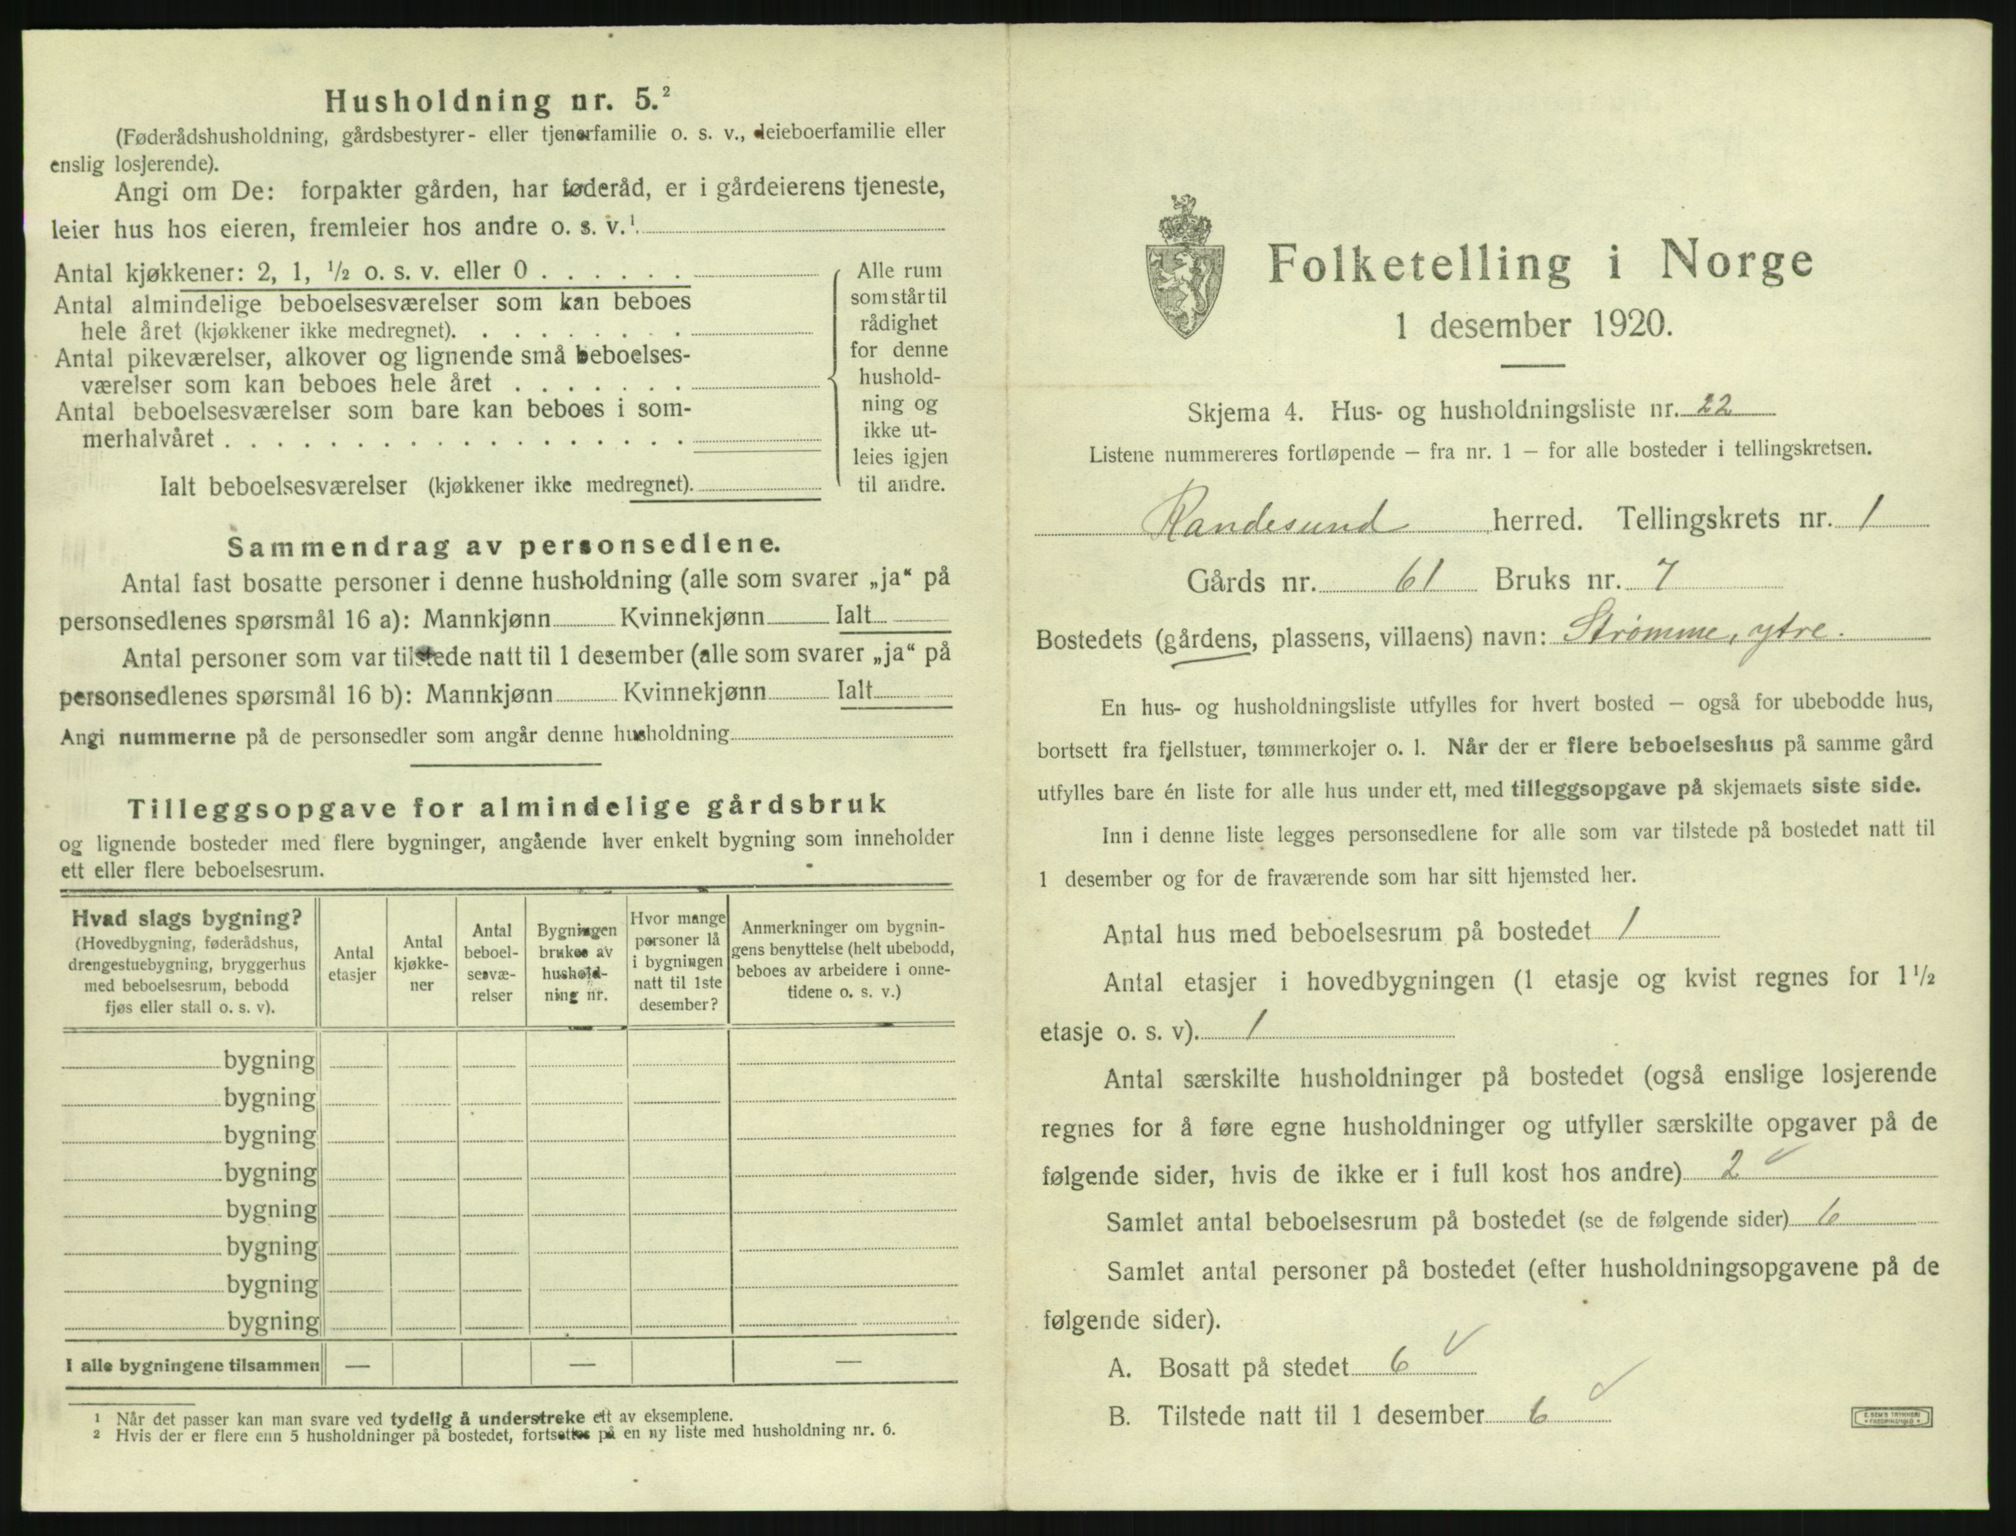 Husholdning nr. 5.²
(Føderådshusholdning, gårdsbestyrer- eller tjenerfamilie o. s. v., leieboerfamilie eller
enslig losjerende).
Angi om De: forpakter gården, har føderåd, er i gårdeierens tjeneste,
leier hus hos eieren, fremleier hos andre o. s. v.¹
Antal kjøkkener: 2, 1, ½ o. s. v. eller 0 . . . . . .
Antal almindelige beboelsesværelser som kan beboes
hele året (kjøkkener ikke medregnet). . . . . . . . .
Antal pikeværelser, alkover og lignende små beboelses-
værelser som kan beboes hele året . . . . . . .
Antal beboelsesværelser som bare kan beboes i som-
merhalvåret . . . . . . . . . . . . . . . . . .
Ialt beboelsesværelser (kjøkkener ikke medregnet).
Alle rum
som står til
rådighet
for denne
hushold-
ning og
ikke ut-
leies igjen
til andre.
Sammendrag av personsedlene.
Antal fast bosatte personer i denne husholdning (alle som svarer „ja“ på
personsedlenes spørsmål 16 a): Mannkjønn Kvinnekjønn Ialt
Antal personer som var tilstede natt til 1 desember (alle som svarer „ja“ på
personsedlenes spørsmål 16 b): Mannkjønn Kvinnekjønn Ialt
Angi nummerne på de personsedler som angår denne husholdning
Tilleggsopgave for almindelige gårdsbruk
og lignende bosteder med flere bygninger, angående hver enkelt bygning som inneholder
ett eller flere beboelsesrum.
Hvad slags bygning?
(Hovedbygning, føderådshus,
drengestuebygning, bryggerhus
med beboelsesrum, bebodd
fjøs eller stall o. s. v).
Antal
etasjer
Antal
kjøkke-
ner
Antal
beboel-
sesvæ-
relser
Bygningen
brukes av
hushold-
ning nr.
Hvor mange
personer lå
i bygningen
natt til 1ste
desember?
Anmerkninger om bygnin-
gens benyttelse (helt ubebodd,
beboes av arbeidere i onne-
tidene o. s. v.)
bygning
bygning
bygning
bygning
bygning
bygning
bygning
bygning
I alle bygningene tilsammen — — —
1 Når det passer kan man svare ved tydelig å understreke ett av eksemplene.
2 Hvis der er flere enn 5 husholdninger på bostedet, fortsettes på en ny liste med husholdning nr. 6.
Folketelling i Norge
1 desember 1920.
Skjema 4. Hus- og husholdningsliste nr. 22
Listene nummereres fortløpende – fra nr. 1 – for alle bosteder i tellingskretsen.
Randesund herred. Tellingskrets nr. 1
Gårds nr. 61 Bruks nr. 7
Bostedets (gårdens, plassens, villaens) navn: Strømme, ytre.
En hus- og husholdningsliste utfylles for hvert bosted – også for ubebodde hus,
bortsett fra fjellstuer, tømmerkojer o. l. Når der er flere beboelseshus på samme gård
utfylles bare én liste for alle hus under ett, med tilleggsopgave på skjemaets siste side.
Inn i denne liste legges personsedlene for alle som var tilstede på bostedet natt til
1 desember og for de fraværende som har sitt hjemsted her.
Antal hus med beboelsesrum på bostedet 1
Antal etasjer i hovedbygningen (1 etasje og kvist regnes for 1½
etasje o. s. v). 1
Antal særskilte husholdninger på bostedet (også enslige losjerende
regnes for å føre egne husholdninger og utfyller særskilte opgaver på de
følgende sider, hvis de ikke er i full kost hos andre) 2 ✓
Samlet antal beboelsesrum på bostedet (se de følgende sider) 6
Samlet antal personer på bostedet (efter husholdningsopgavene på de
følgende sider).
A. Bosatt på stedet 6 ✓
B. Tilstede natt til 1 desember 6 ✓